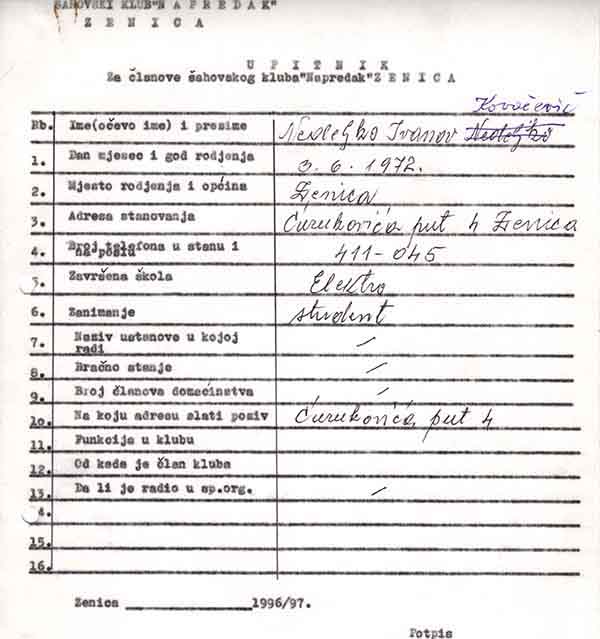 ŠAHOVSKI KLUB"N A P R E D A K"
Z E N I C A
U P I T N I K
Za članove šahovskog kluba"Napredak"Z E N I C A
Kovačević
Rb. Ime(očevo ime) i prezime Nedeljko Ivanov Nedeljko
1. Dan mjesec i god rodjenja 3. 6. 1972.
2. Mjesto rodjenja i općina Zenica
3. Adresa stanovanja Ćurukovića put 4 Zenica
4. Broj telefona u stanu i
na poslu 411-045
5. Završena škola Elektro
6. Zanimanje student
7. Naziv ustanove u kojoj
radi /
8. Bračno stanje /
9. Broj članova domaćinstva /
10. Na koju adresu slati poziv Ćurukovića put 4
11. Funkcija u klubu
12. Od kada je član kluba
13. Da li je radio u sp.org. /
4.
15.
16.
Zenica __________1996/97.
Potpis